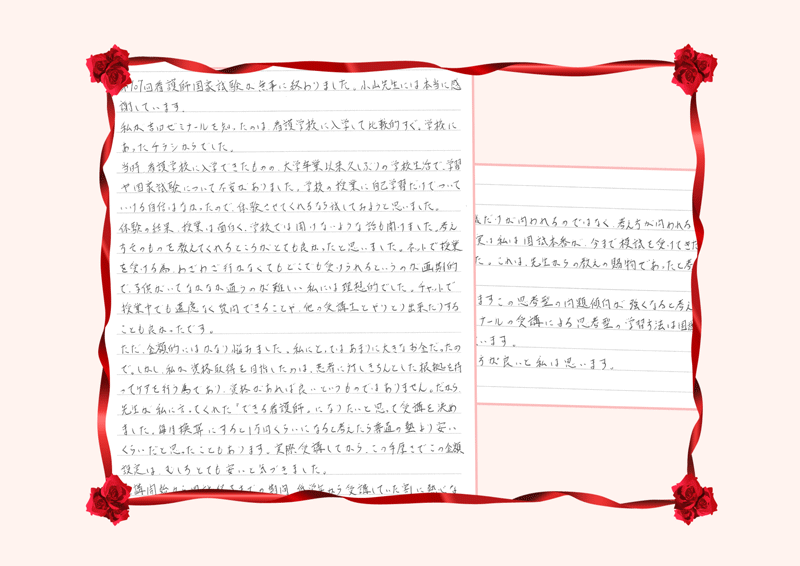 第107回看護師国家試験が無事に終わりました。小山先生には本当に感
謝しています。
私が吉田ゼミナールを知ったのは看護学校に入学して比較的すぐ。学校に
あったチラシからでした。
当時 看護学校に入学できたものの、大学卒業以来久しぶりの学校生活で、学習
や国家試験について不安がありました。学校の授業に自己学習だけでついて
いける自信はなかったので、体験させてくれるなら試してみようと思いました。
体験の結果、授業は面白く、学校では聞けないような話も聞けました。考え
方そのものを教えてくれるところがとても良かったと思いました。ネットで授業
を受ける為、わざわざ行かなくてもどこでも受けられるというのが画期的
で、子供がいてなかなか通うのが難しい私には理想的でした。チャットで
授業中でも遠慮なく質問できることや、他の受講生とやりとり出来たりする
ことも良かったです。
ただ、金額的にはかなり悩みました。私にとってはあまりに大きなお金だったの
で。しかし、私が資格取得を目指したのは、患者に対しきちんとした根拠を持
ってケアを行う為であり、資格があれば良いというものではありません。だから
先生が私に言ってくれた"できる看護師"になりたいと思って受講を決め
ました。毎月換算にすると1万円くらいになると考えたら普通の塾より安い
くらいだと思ったこともあります。実際受講してから、この手厚さでこの金額
設定は、むしろとても安いと気づきました。
講開始から国試終了までの期間、低学年から受講していた割に熱心な
識だけが問われるのではなく、考え方が問われる
実は私は国試本番が、今まで模試を受けてきた
た。これは、先生からの教えの賜物であったと考
ますこの思考型の問題傾向が強くなると考え
ナールの受講による思考型の学習方法は国試
います。
方が良いと私は思います。